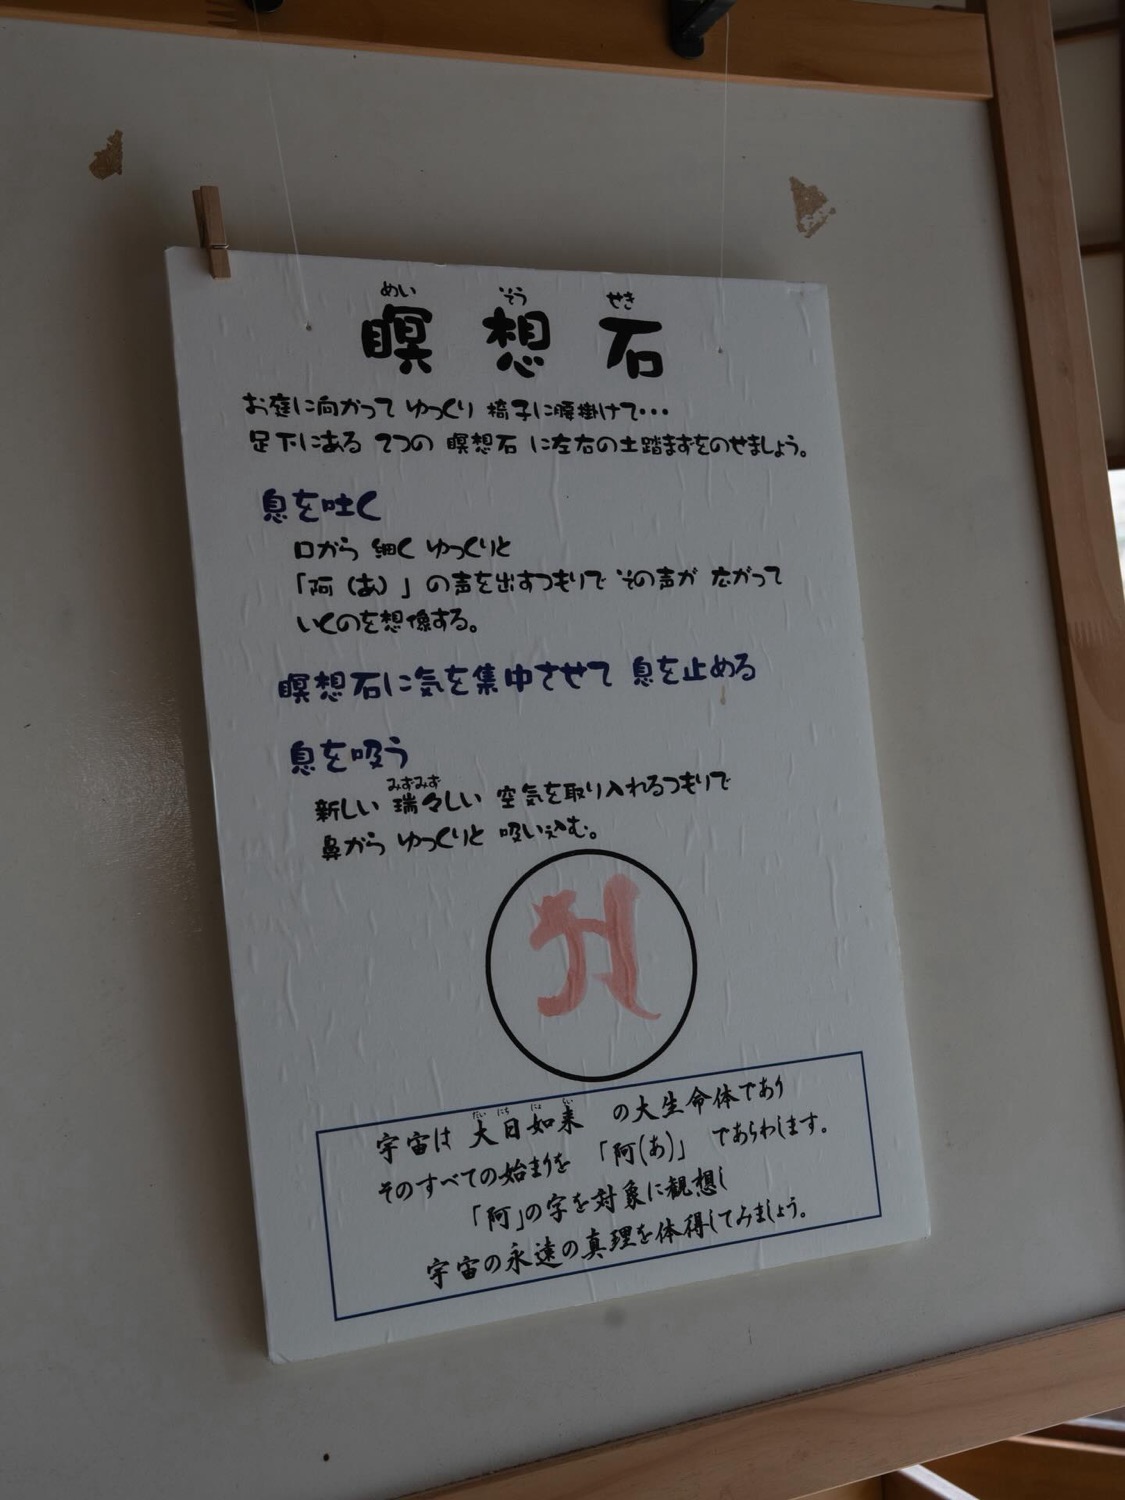 めい そう せき
瞑想石
お庭に向かって ゆっくり 椅子に腰掛けて・・・
足下にある 2つの 瞑想石 に左右の土踏まずをのせましょう。
息を吐く
口から 細く ゆっくりと
「阿（あ）」の声を出すつもりで その声が 広がって
いくのを想像する。
瞑想石に気を集中させて 息を止める
息を吸う
みずみず
新しい 瑞々しい 空気を取り入れるつもりで
鼻から ゆっくりと 吸い込む。
だい にち にょ らい
宇宙は 大日如来 の大生命体であり
そのすべての始まりを 「阿(あ)」 であらわします。
「阿」の字を対象に観想し
宇宙の永遠の真理を体得してみましょう。